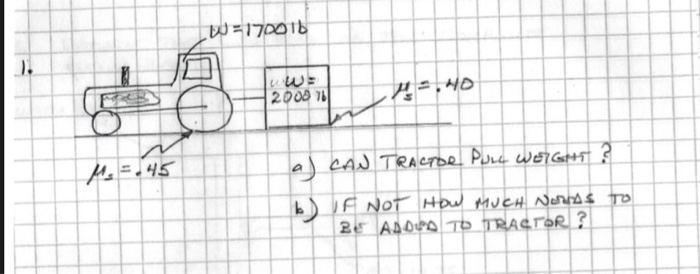 W=1700lb
1.
W=
2000 lb
μs=.40
μs=.45
a) CAN TRACTOR PULL WEIGHT?
b) IF NOT HOW MUCH NEEDS TO
BE ADDED TO TRACTOR?